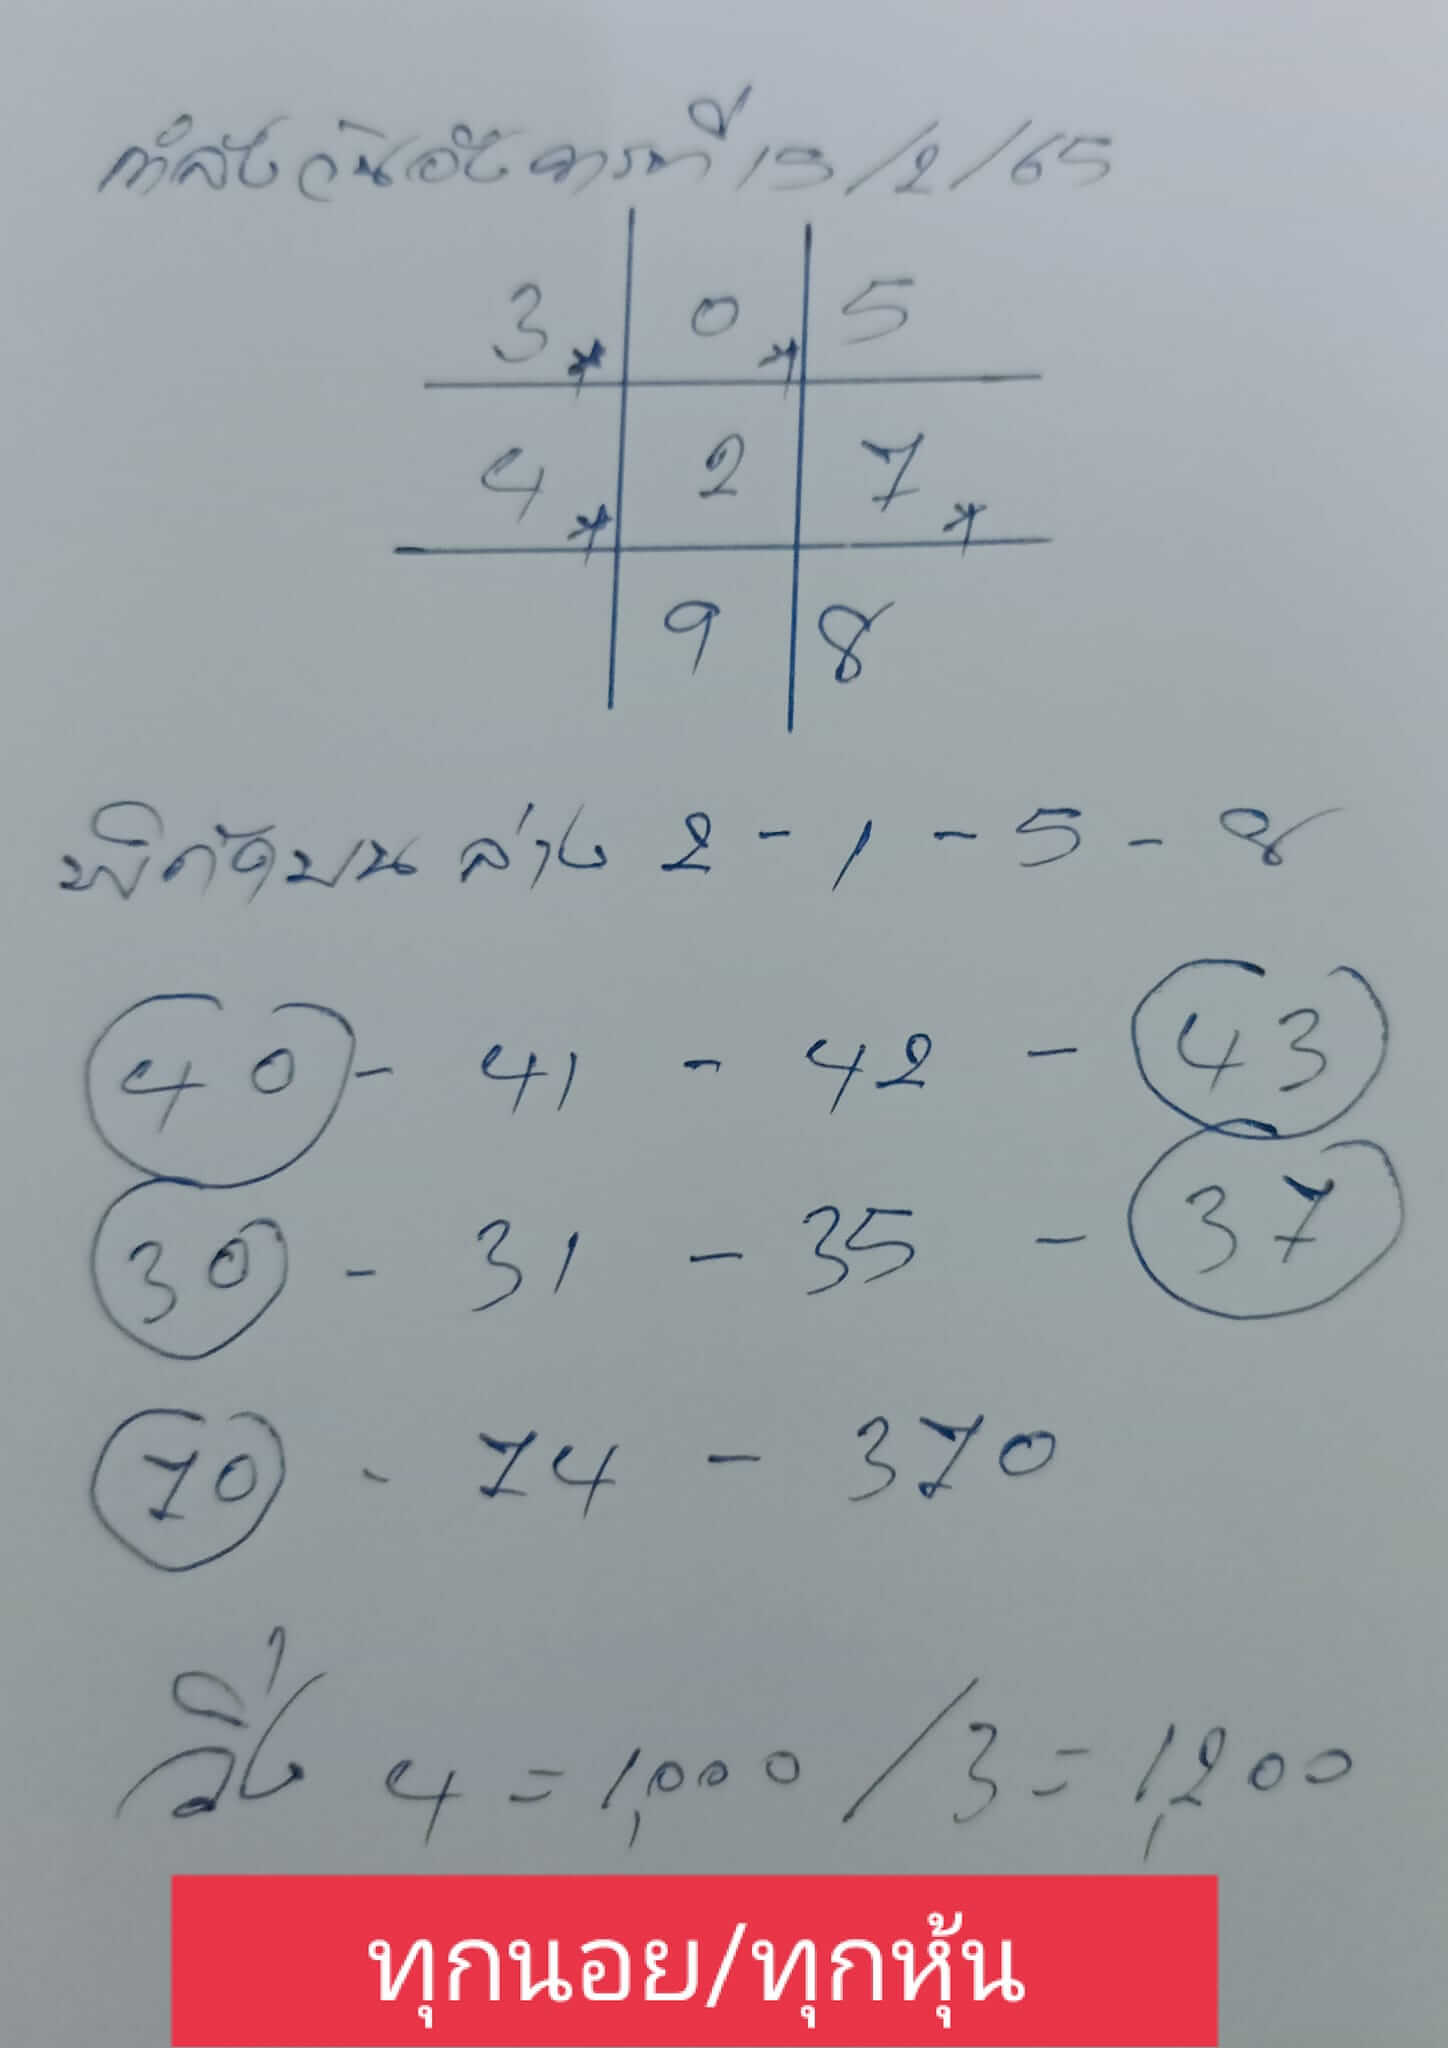 กำลังวันอังคารที่ 15/2/65
3* 0* 5
4* 2 7*
9 8
พิกัดบน ล่าง 2 - 1 - 5 - 8
40 - 41 - 42 - 43
30 - 31 - 35 - 37
70 - 74 - 370
วิ่ง 4 = 1,000 / 3 = 1,200
ทุกนอย/ทุกหุ้น